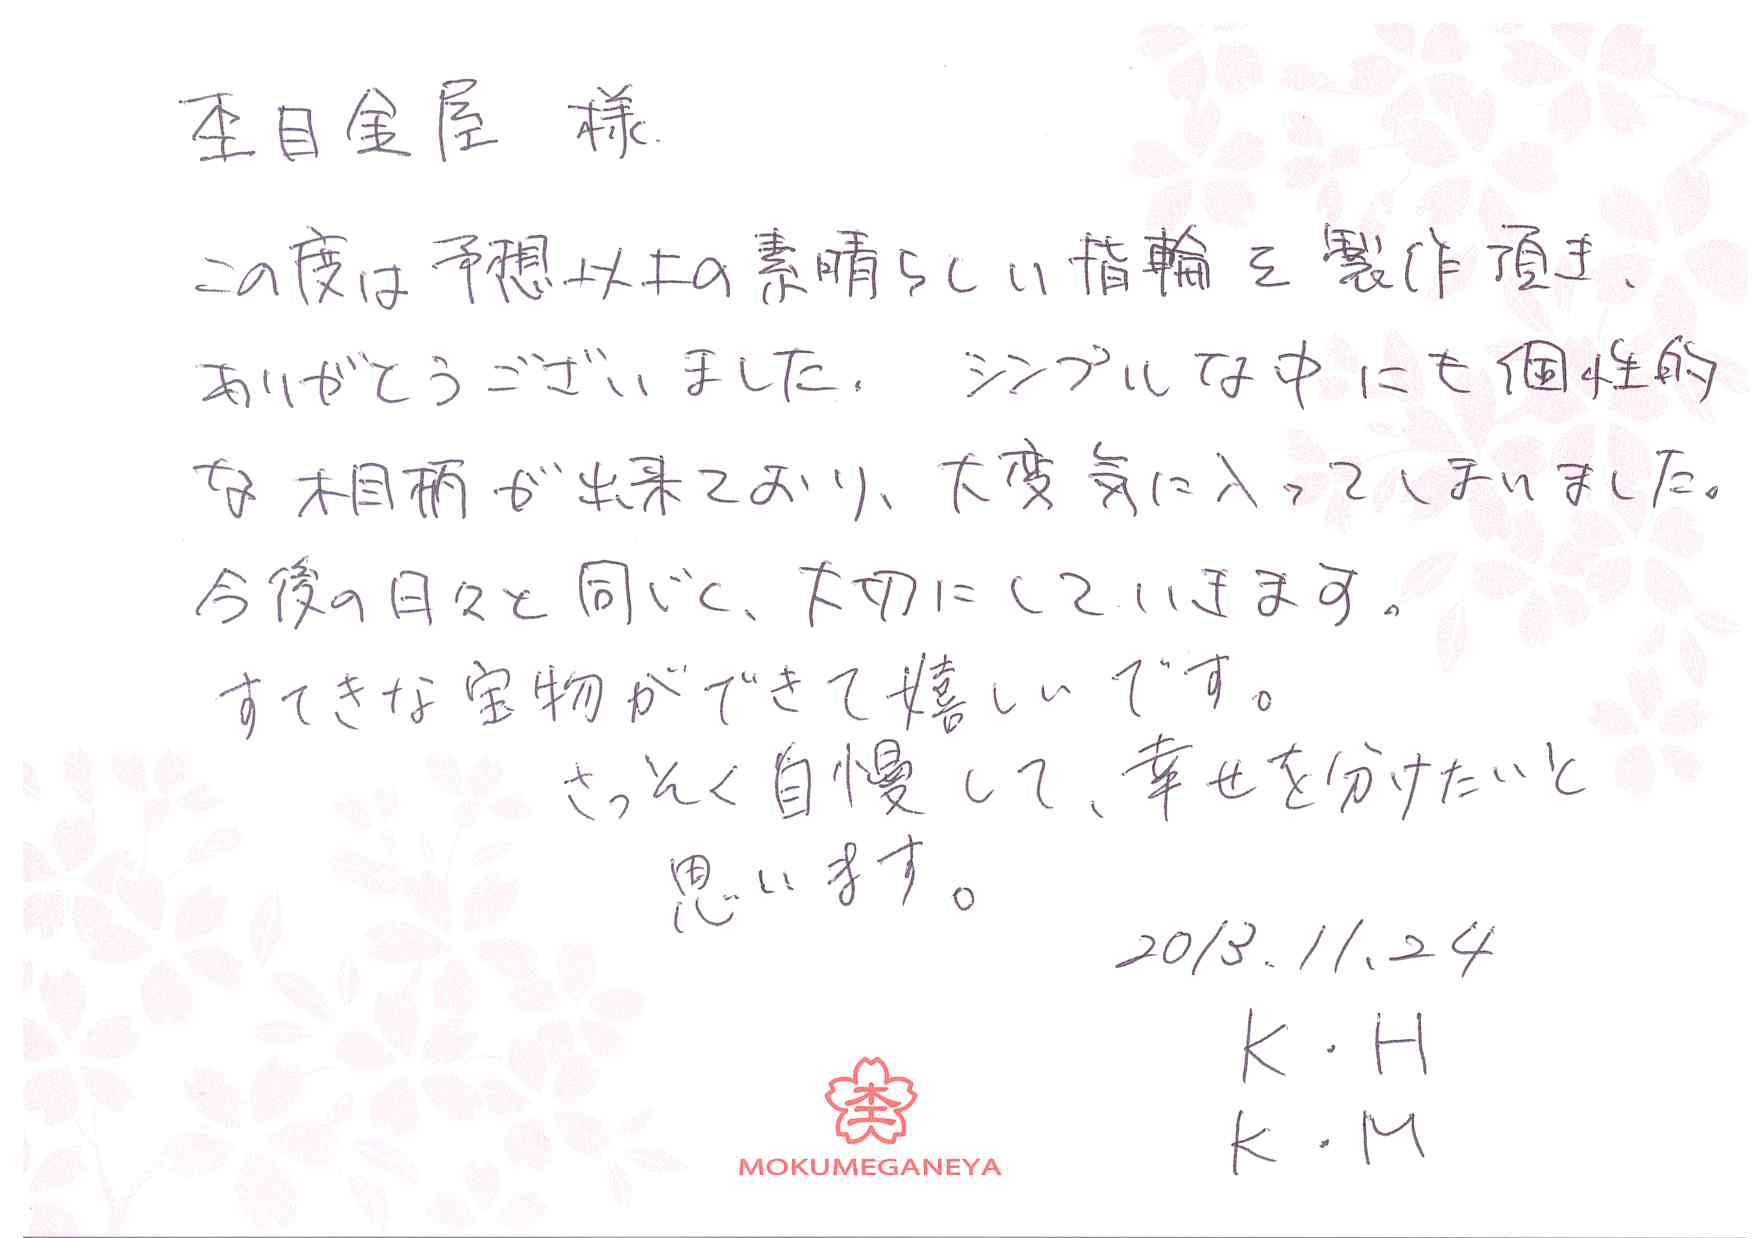 杢目金屋 様.
この度は予想以上の素晴らしい指輪を製作頂き、
ありがとうございました. シンプルな中にも個性的
な木目柄が出来ており、大変気に入ってしまいました。
今後の日々と同じく、大切にしていきます。
すてきな宝物ができて嬉しいです。
さっそく自慢して、幸せを分けたいと
思います。
2013.11.24
K・H
K・M
杢
MOKUMEGANEYA